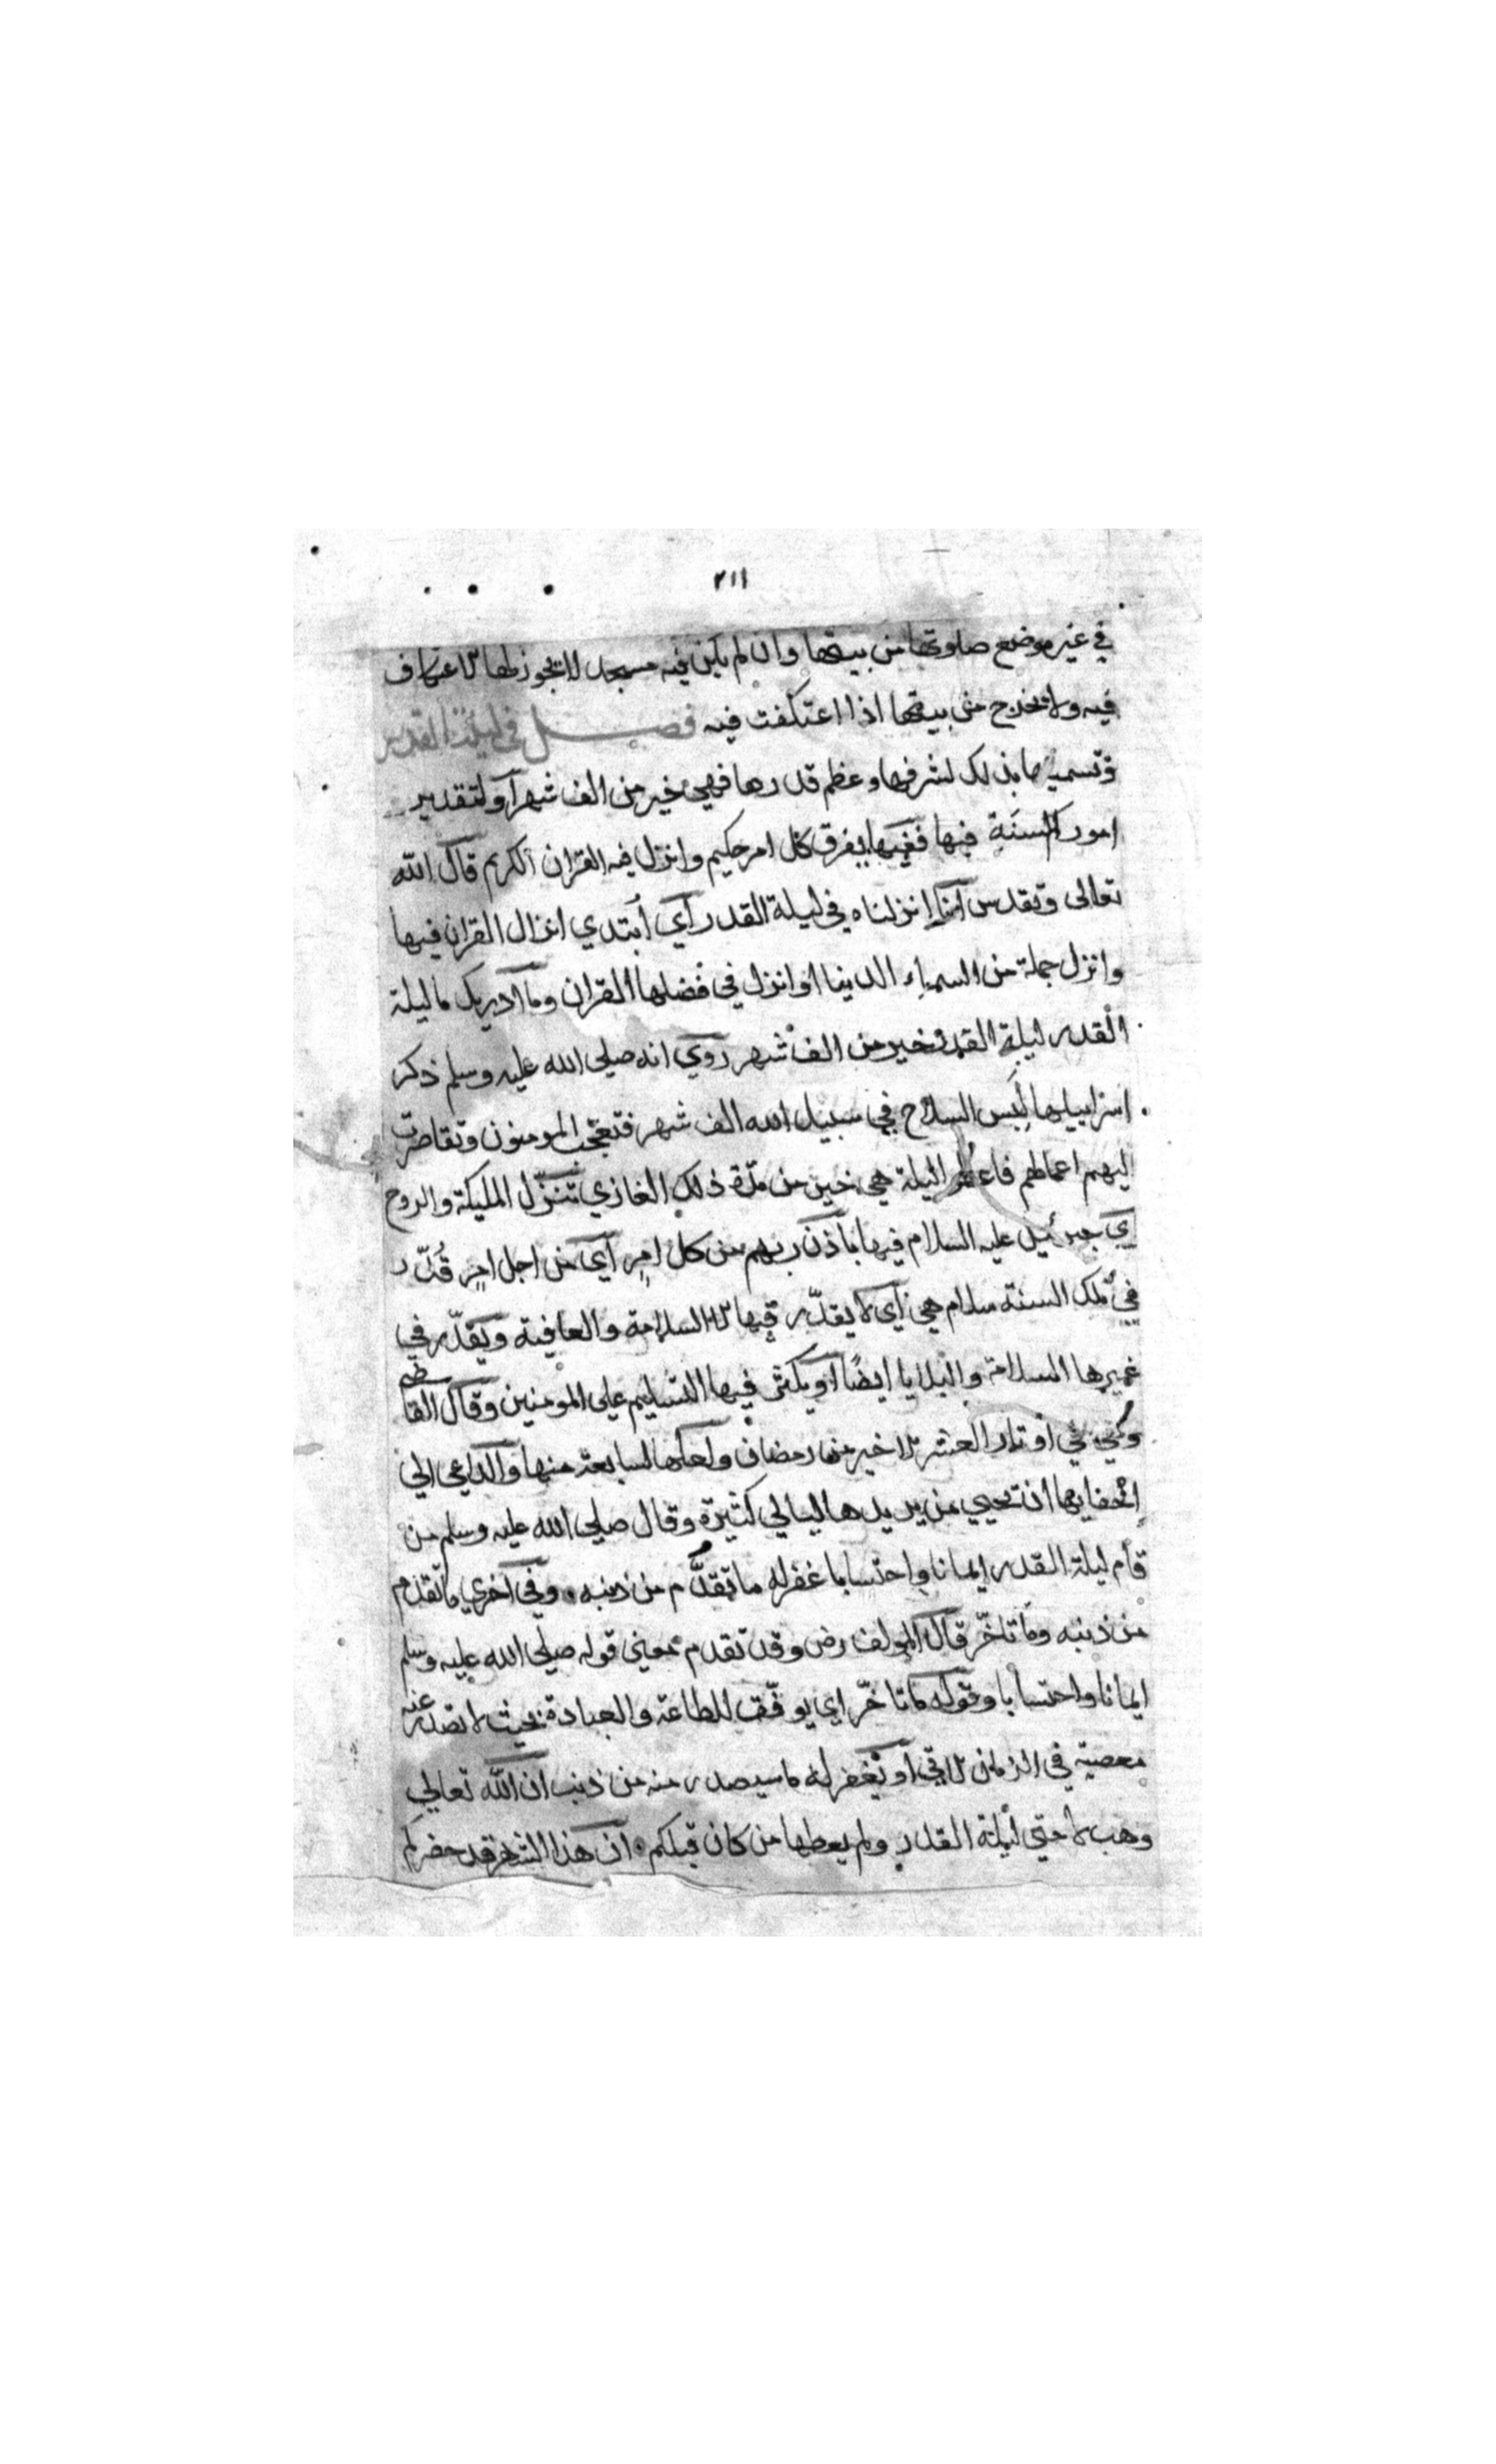 ٢١١
في غير موضع صلوتها من بيتها وان لم يكن فيه مسجد لا يجوز لها الاعتكاف
فيه ولا تخرج من بيتها اذا اعتكفت فيه فصل في ليلة القدر
وتسميتها بذلك لشرفها وعظم قدرها فهي خير من الف شهر او لتقدير
امور السنة فيها ففيها يفرق كل امر حكيم وانزل فيه القران الكريم قال الله
تعالى وتقدس انا انزلناه في ليلة القدر اي ابتدي انزال القران فيها
وانزل جملة من السماء الدينا او انزل في فضلها القران وما ادريك ما ليلة
القدر ليلة القدر خير من الف شهر روي انه صلي الله عليه وسلم ذكر
اسراييليا لبس السلاح في سبيل الله الف شهر فتعجب المومنون وتقاصرت
اليهم اعمالهم فاعطوا ليلة هي خير من مدة ذلك الغازي تنزل المليكة والروح
اي جبرئيل عليه السلام فيها باذن ربهم من كل امر اي من اجل امر قدر
في تلك السنة سلام هي اي لا يقدر فيها الا السلامة والعافية ويقدر في
غيرها السلامة والبلايا ايضا او يكثر فيها التسليم على المومنين وقال القاضي
وهي في اوتار العشر الاخير من رمضان ولعلها السابعة منها والداعي الي
اخفايها ان تحيي من يريدها ليالي كثيرة وقال صلي الله عليه وسلم من
قام ليلة القدر ايمانا واحتسابا غفر له ما تقدم من ذنبه وفي اخري ما تقدم
من ذنبه وما تاخر قال المولف رض وقد تقدم معني قوله صلي الله عليه وسلم
ايمانا واحتسابا وقوله ما تاخر اي يوفق للطاعة والعبادة بحيث لا تصدر عنه
معصية في الزمان الاتي او يغفر له ما سيصدر منه من ذنب ان الله تعالي
وهب لامتي ليلة القدر ولم يعطها من كان قبلكم ان هذا الشهر قد حضركم